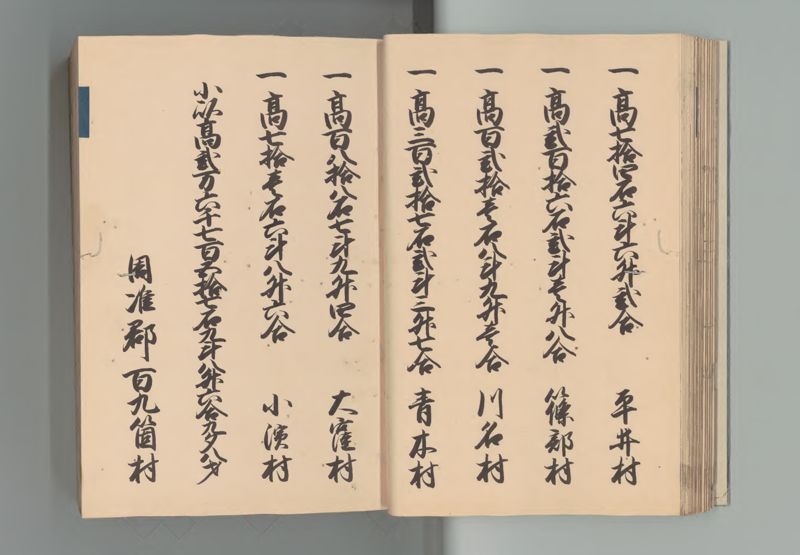 一高七拾四石六斗六升弐合　平井村
一高弐百拾六石弐斗壱升八合　篠部村
一高百弐拾壱石八斗九升壱合　川名村
一高三百弐拾七石弐斗三升七合　青木村
一高百八拾八石七斗九升四合　大窪村
一高七拾壱石六斗八升六合　小濱村
小以高弐万六千七百六拾七石九斗八升六合九夕八才
周准郡　百九箇村